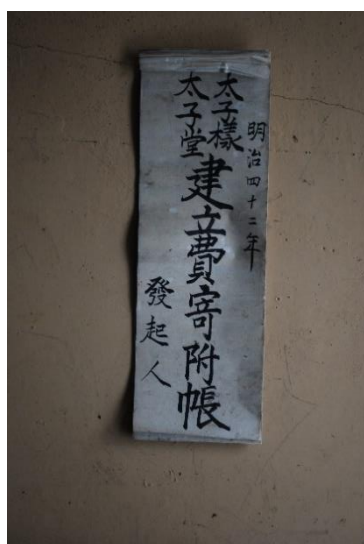 明治四十二年
太子様
太子堂
建立費寄附帳
發起人